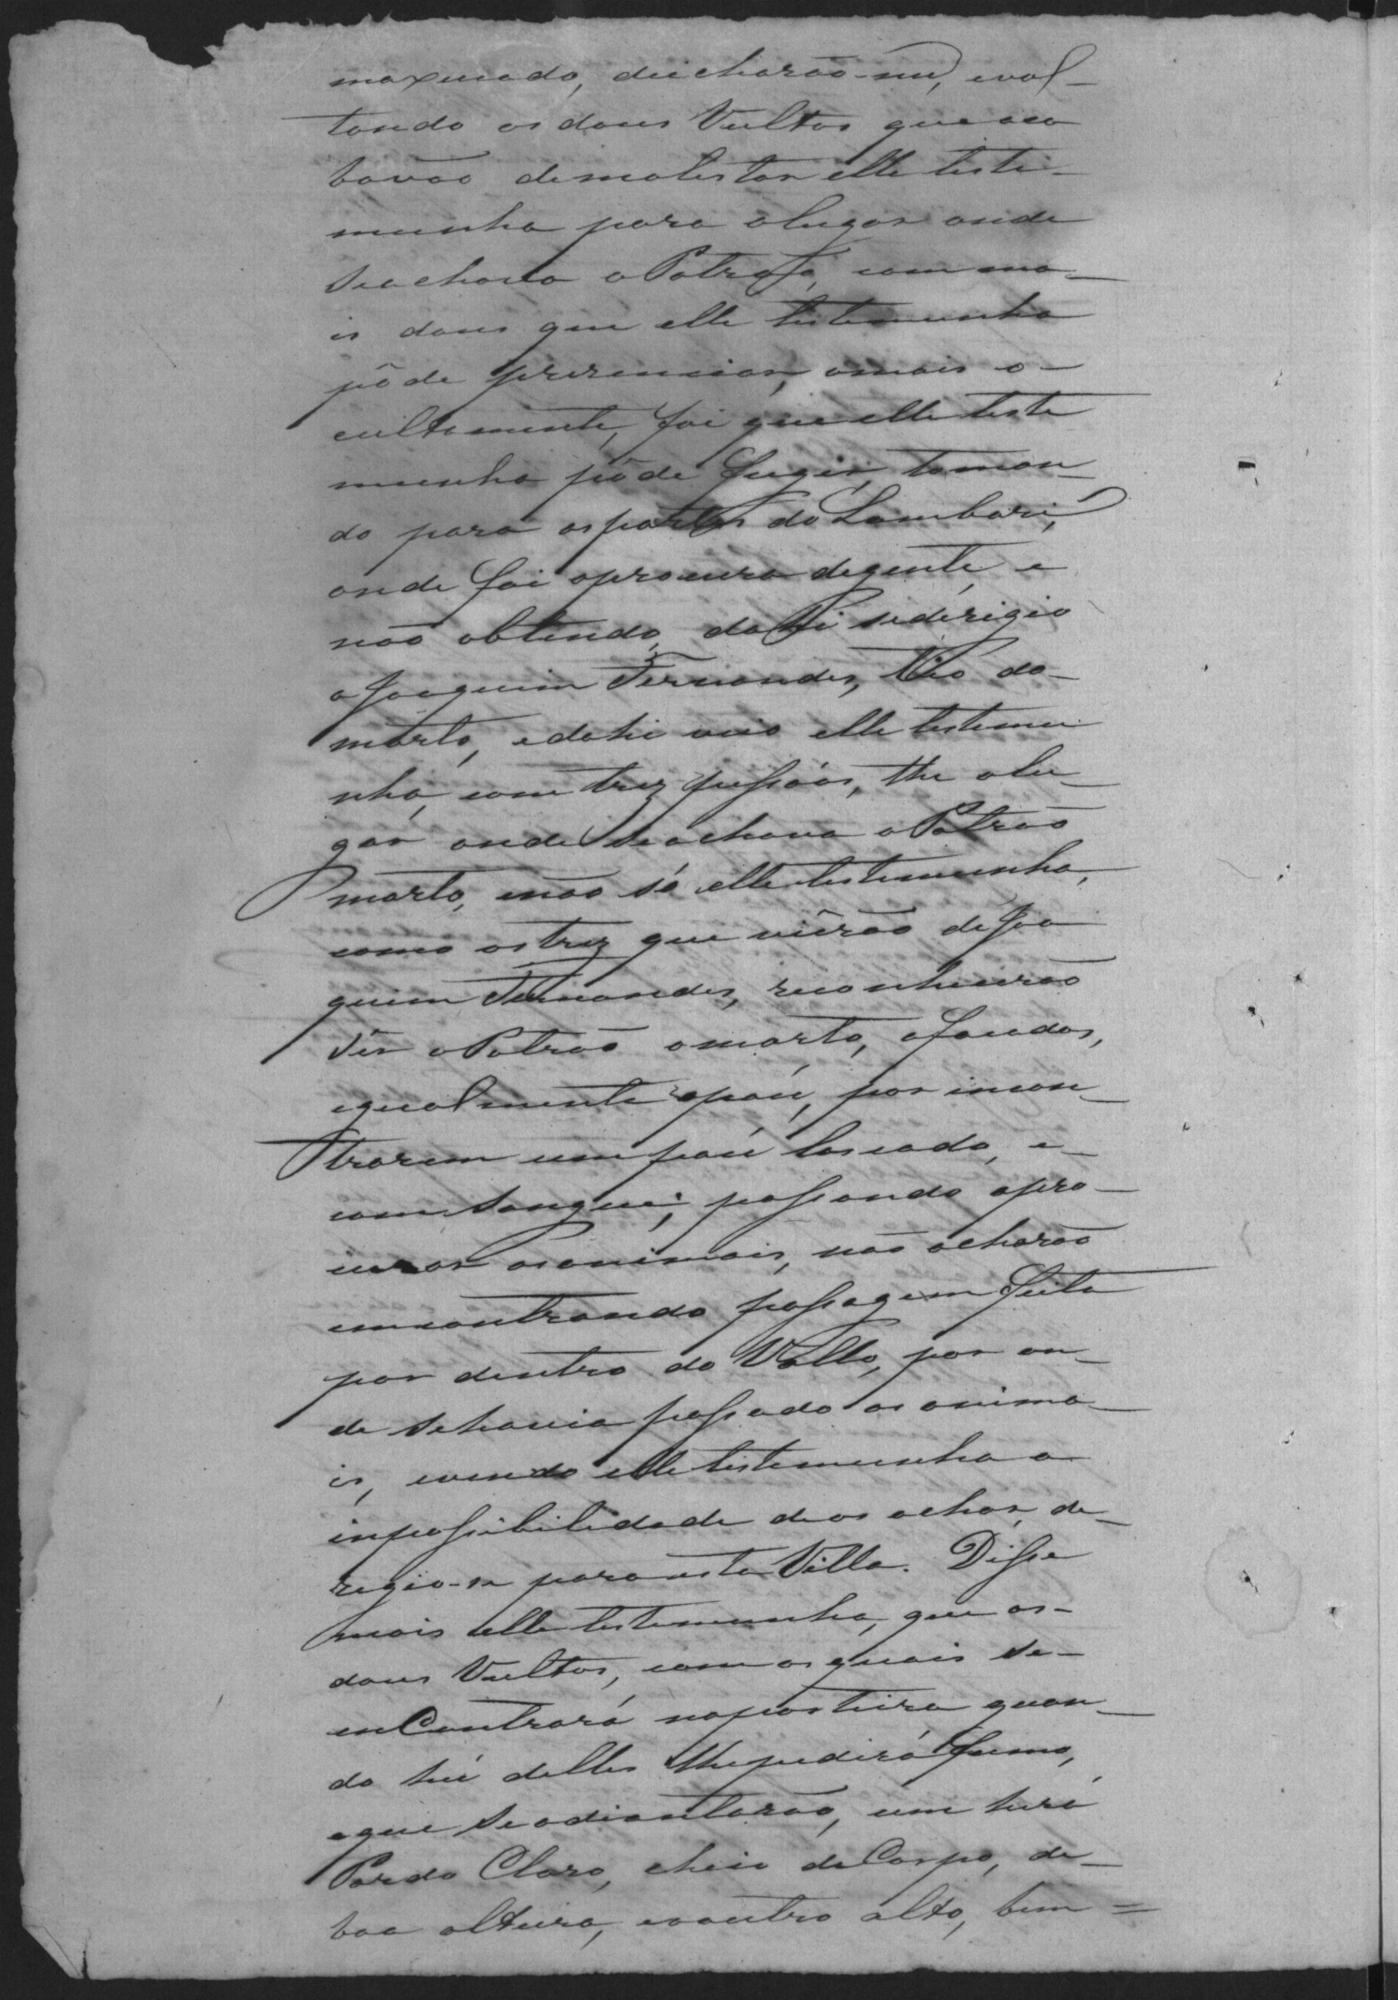 maxucado, deicharão-no, evol-
tando os dous Vultos que aca
bavão demolestar elle teste-
munha para olugar onde
seachava oPatrão, com ma-
is dous que elle testemunha
pôde presenciar, omais o-
cultamente, foi que elle teste
munha pôde fugir, toman-
do para aspartes do Lambari,
onde foi aprocura degente, e
não obtendo, dahi sederigio
aJoaquim Fernandes, Tio do-
morto, edahi veio elle testemu
nha, com trez pessôas, the olu-
gar onde seachava oPatrão
morto, enão só elle testemunha,
como os trez que viérão deJoa
quim Fernandes, reconhecerão
sêr oPatrão omorto, afacadas,
egualmente apáu, por incon-
trarem um páu lascado, e-
com sangue; passando apro-
curar osanimais, não acharão
encontrando passagem feita
por dentro do Vallo, por on-
de sehavia passado os anima-
is, evendo elle testemunha a
inpossibilidade deos achar, de-
regio-se paraesta Villa. Disse
mais elle testemunha, que os-
dous Vultos, com os quais se-
enContrará naporteira quan-
do hú delles lhepedirá fumo,
eque seadiantarão, um hera
Pardo Claro, cheio deCorpo, de-
boa altura, eooutro alto, bem=